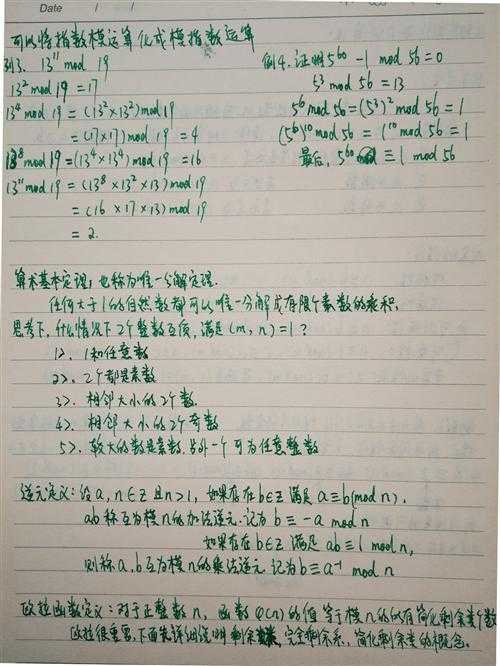 Date
可以将指数模运算化成模指数运算
例3. 13^11 mod 19
13^2 mod 19 = 17
13^4 mod 19 = (13^2×13^2) mod 19
= (17×17) mod 19 = 4
13^8 mod 19 = (13^4×13^4) mod 19 = 16
13^11 mod 19 = (13^8×13^2×13) mod 19
= (16×17×13) mod 19
= 2.
例4. 证明 5^60 - 1 mod 56 = 0
5^3 mod 56 = 13
5^6 mod 56 = (5^3)^2 mod 56 = 1
(5^6)^10 mod 56 = 1^10 mod 56 = 1
最后, 5^60 ≡ 1 mod 56
算术基本定理, 也称为唯一分解定理.
任何大于1的自然数都可以唯一分解成有限个素数的乘积,
思考下, 什么情况下2个整数互质, 满足(m, n)=1?
1>. 1和任意数
2>. 2个都是素数
3>. 相邻大小的2个数.
4>. 相邻大小的2个奇数
5>. 较大的数是素数, 另外一个可为任意整数
逆元定义: 设a, n∈Z 且n>1, 如果存在b∈Z 满足 a≡b(mod n),
ab称互为模n的加法逆元. 记为 b≡-a mod n
如果存在b∈Z 满足 ab≡1 mod n,
则称a,b互为模n的乘法逆元 记为b≡a^-1 mod n
欧拉函数定义: 对于正整数n, 函数φ(n)的值等于模n的所有简化剩余类个数
欧拉很重要, 下面来详细说明剩余 完全剩余系, 简化剩余类的概念.